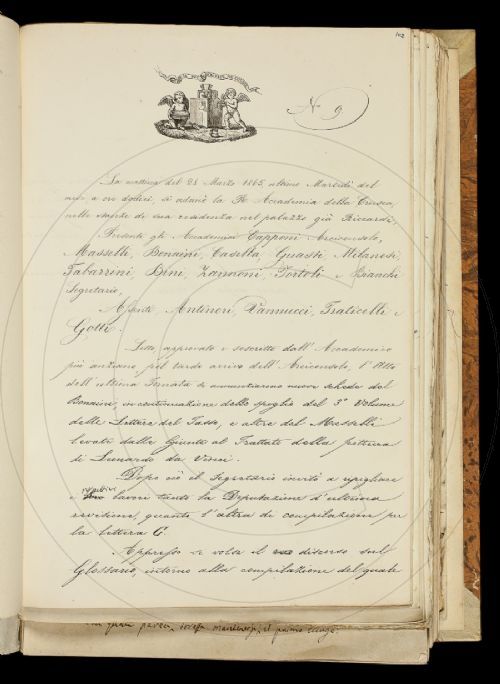 102
N. 9.
La mattina del 28 Marzo 1865, ultimo Martedì del
mese a ore dodici, si adunò la R. Accademia della Crusca,
nelle stanze di sua residenza nel palazzo già Riccardi,
Presenti gli Accademici Capponi Arciconsolo,
Masselli, Bonaini, Casella, Guasti, Milanesi,
Tabarrini, Bini, Zannoni, Tortoli e Bianchi
Segretario,
Assenti, Antinori, Vannucci, Fraticelli e
Gotti.
Letto, approvato e soscritto dall'Accademico
più anziano, pel tardo arrivo dell'Arciconsolo, l'Atto
dell'ultima Tornata si annunziarono nuove schede del
Bonaini, in continuazione dello spoglio del 3° Volume
delle Lettere del Tasso, e altre del Masselli
levate dalle Giunte al Trattato della pittura
di Leonardo da Vinci.
Dopo ciò il Segretario invitò a ripigliare
i respettivi lavori tanto la Deputazione d'ulteriore
revisione, quanto l'altra di compilazione per
la lettera C.
Appresso si volse il discorso sul
Glossario, intorno alla compilazione del quale